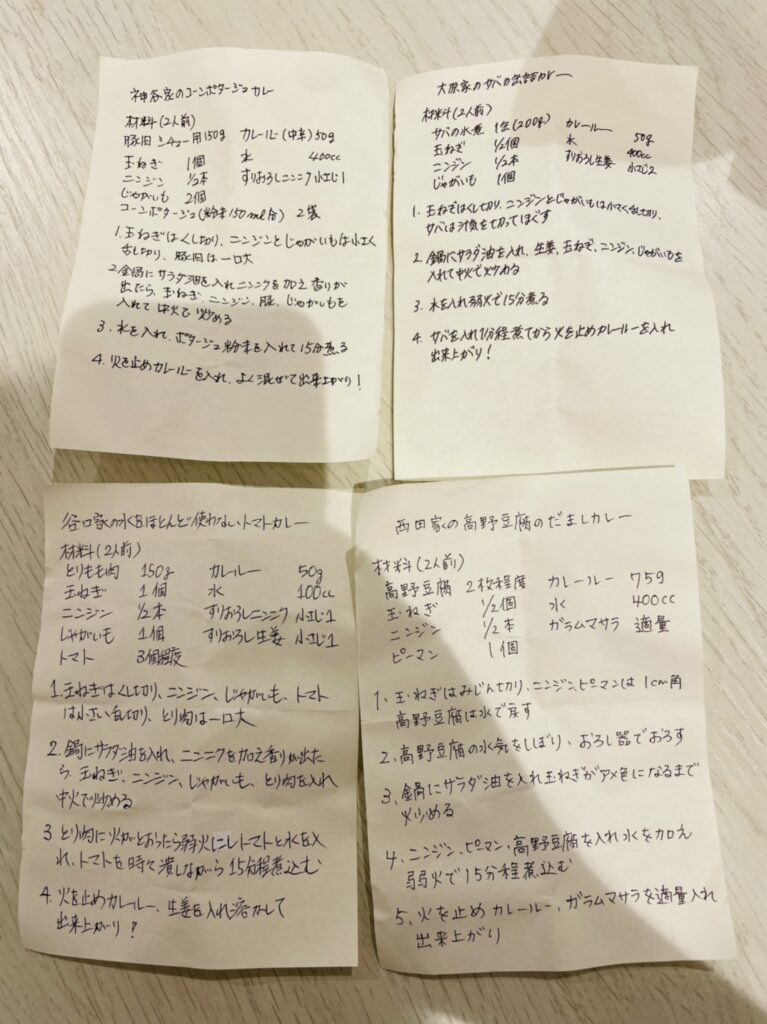 神谷家のコーンポタージュカレー
材料(2人前)
豚肉シチュー用150g カレールー(中辛)50g
玉ねぎ 1個 水 400cc
ニンジン 1/2本 すりおろしニンニク 小さじ1
じゃがいも 2個
コーンポタージュ(粉末150ml分) 2袋
1. 玉ねぎはくし切り、ニンジンとじゃがいもは小さく
乱切り、豚肉は一口大
2. 鍋にサラダ油を入れニンニクを加え香りが
出たら、玉ねぎ、ニンジン、豚、じゃがいもを
入れて中火で炒める
3. 水を入れ、ポタージュ粉末を入れて15分煮る
4. 火を止めカレールーを入れ、よく混ぜて出来上がり!
大原家のサバの缶詰カレー
材料(2人前)
サバの水煮 1缶(200g) カレールー 50g
玉ねぎ 1/2個 水 400cc
ニンジン 1/2本 すりおろし生姜 小さじ2
じゃがいも 1個
1. 玉ねぎはくし切り、ニンジンとじゃがいもは小さく乱切り、
サバは汁気を切ってほぐす
2. 鍋にサラダ油を入れ、生姜、玉ねぎ、ニンジン、じゃがいもを
入れて中火で炒める
3. 水を入れ弱火で15分煮る
4. サバを入れ1分程煮てから火を止めカレールーを入れ
出来上がり!
谷口家の水をほとんど使わないトマトカレー
材料(2人前)
とりもも肉 150g カレールー 50g
玉ねぎ 1個 水 100cc
ニンジン 1/2本 すりおろしニンニク 小さじ1
じゃがいも 1個 すりおろし生姜 小さじ1
トマト 3個程度
1. 玉ねぎはくし切り、ニンジン、じゃがいも、トマト
は小さい乱切り、とり肉は一口大
2. 鍋にサラダ油を入れ、ニンニクを加え香りが出た
ら、玉ねぎ、ニンジン、じゃがいも、とり肉を入れ
中火で炒める
3 とり肉に火がとおったら弱火にしトマトと水を入
れ、トマトを時々潰しながら15分程煮込む
4. 火を止めカレールー、生姜を入れ溶かして
出来上がり!
西田家の高野豆腐のだましカレー
材料(2人前)
高野豆腐 2枚程度 カレールー 75g
玉ねぎ 1/2個 水 400cc
ニンジン 1/2本 ガラムマサラ 適量
ピーマン 1個
1、玉ねぎはみじん切り、ニンジン、ピーマンは1cm角
高野豆腐は水で戻す
2、高野豆腐の水気をしぼり、おろし器でおろす
3、鍋にサラダ油を入れ玉ねぎがアメ色になるまで
炒める
4、ニンジン、ピーマン、高野豆腐を入れ水を加え
弱火で15分程煮込む
5、火を止めカレールー、ガラムマサラを適量入れ
出来上がり